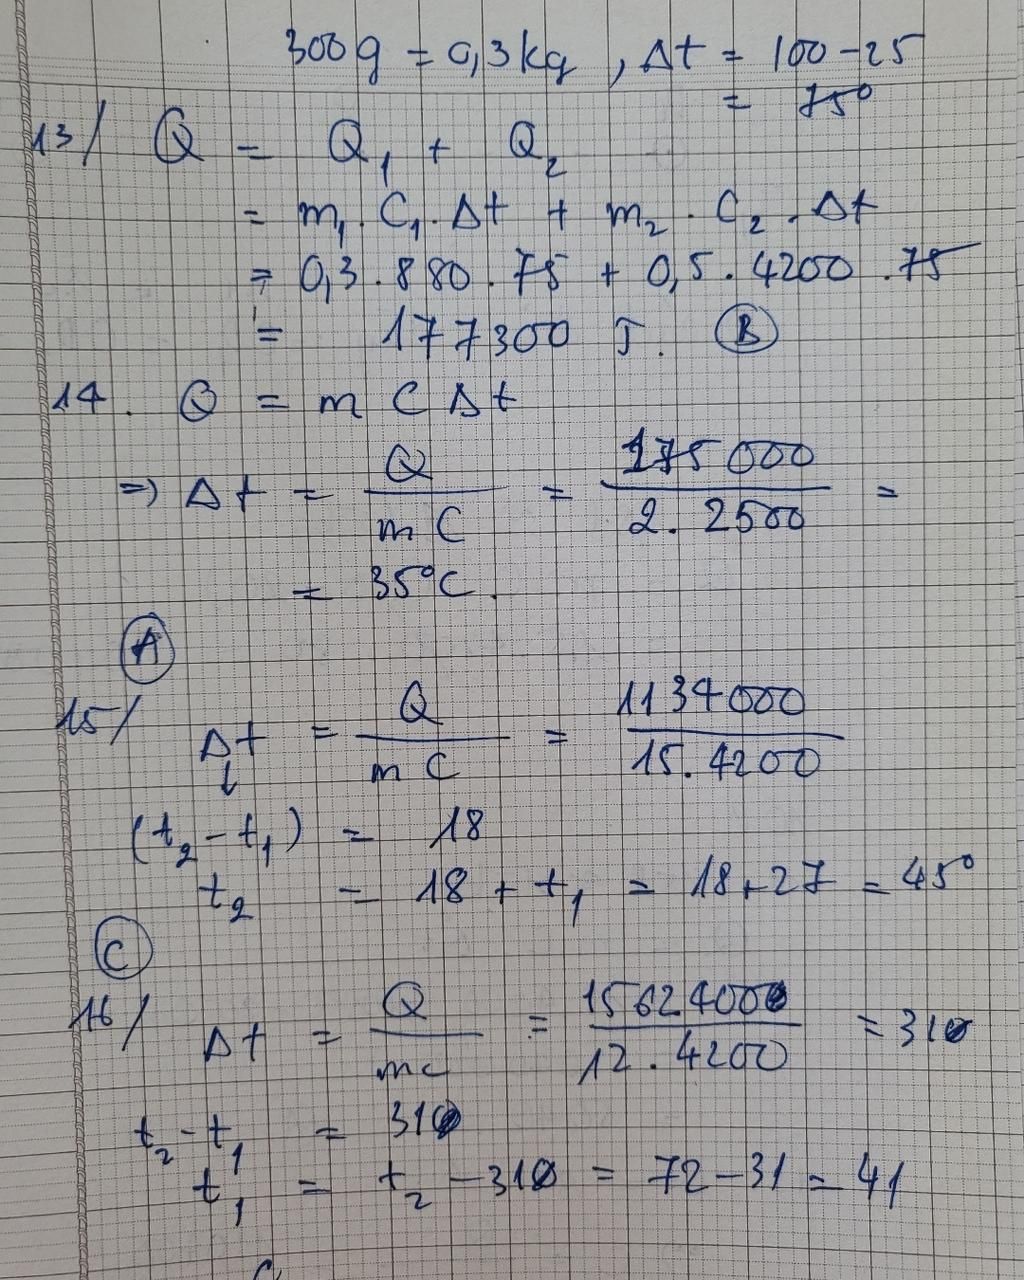 300g = 0,3kg , Δt = 100-25
= 75°
13/ Q = Q₁ + Q₂
= m₁. C₁. Δt + m₂. C₂. Δt
= 0,3.880.75 + 0,5.4200.75
= 177300 J. (B)
14. Q = m C Δt
=) Δt = Q/mC = 175000/2.2500 =
= 35°C.
(A)
15/ Δt = Q/mC = 1134000/15.4200
(t₂-t₁) = 18
t₂ = 18 + t₁ = 18+27 = 45°
(C)
16/ Δt = Q/mc = 1562400/12.4200 = 31
t₂-t₁ = 31
t₁ = t₂ - 31 = 72-31 = 41